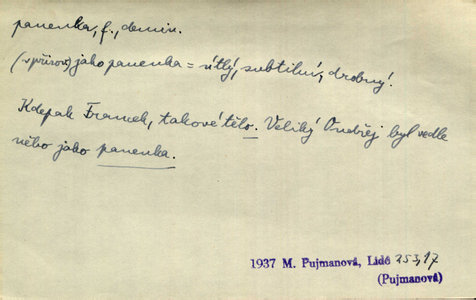 panenka, f., demin.
(v přirov.) jako panenka = útlý, subtilní, drobný.
Kdepak Franek, takové tělo. Veliký Ondřej byl vedle
něho jako panenka.
1937 M. Pujmanová, Lidé
(Pujmanová)